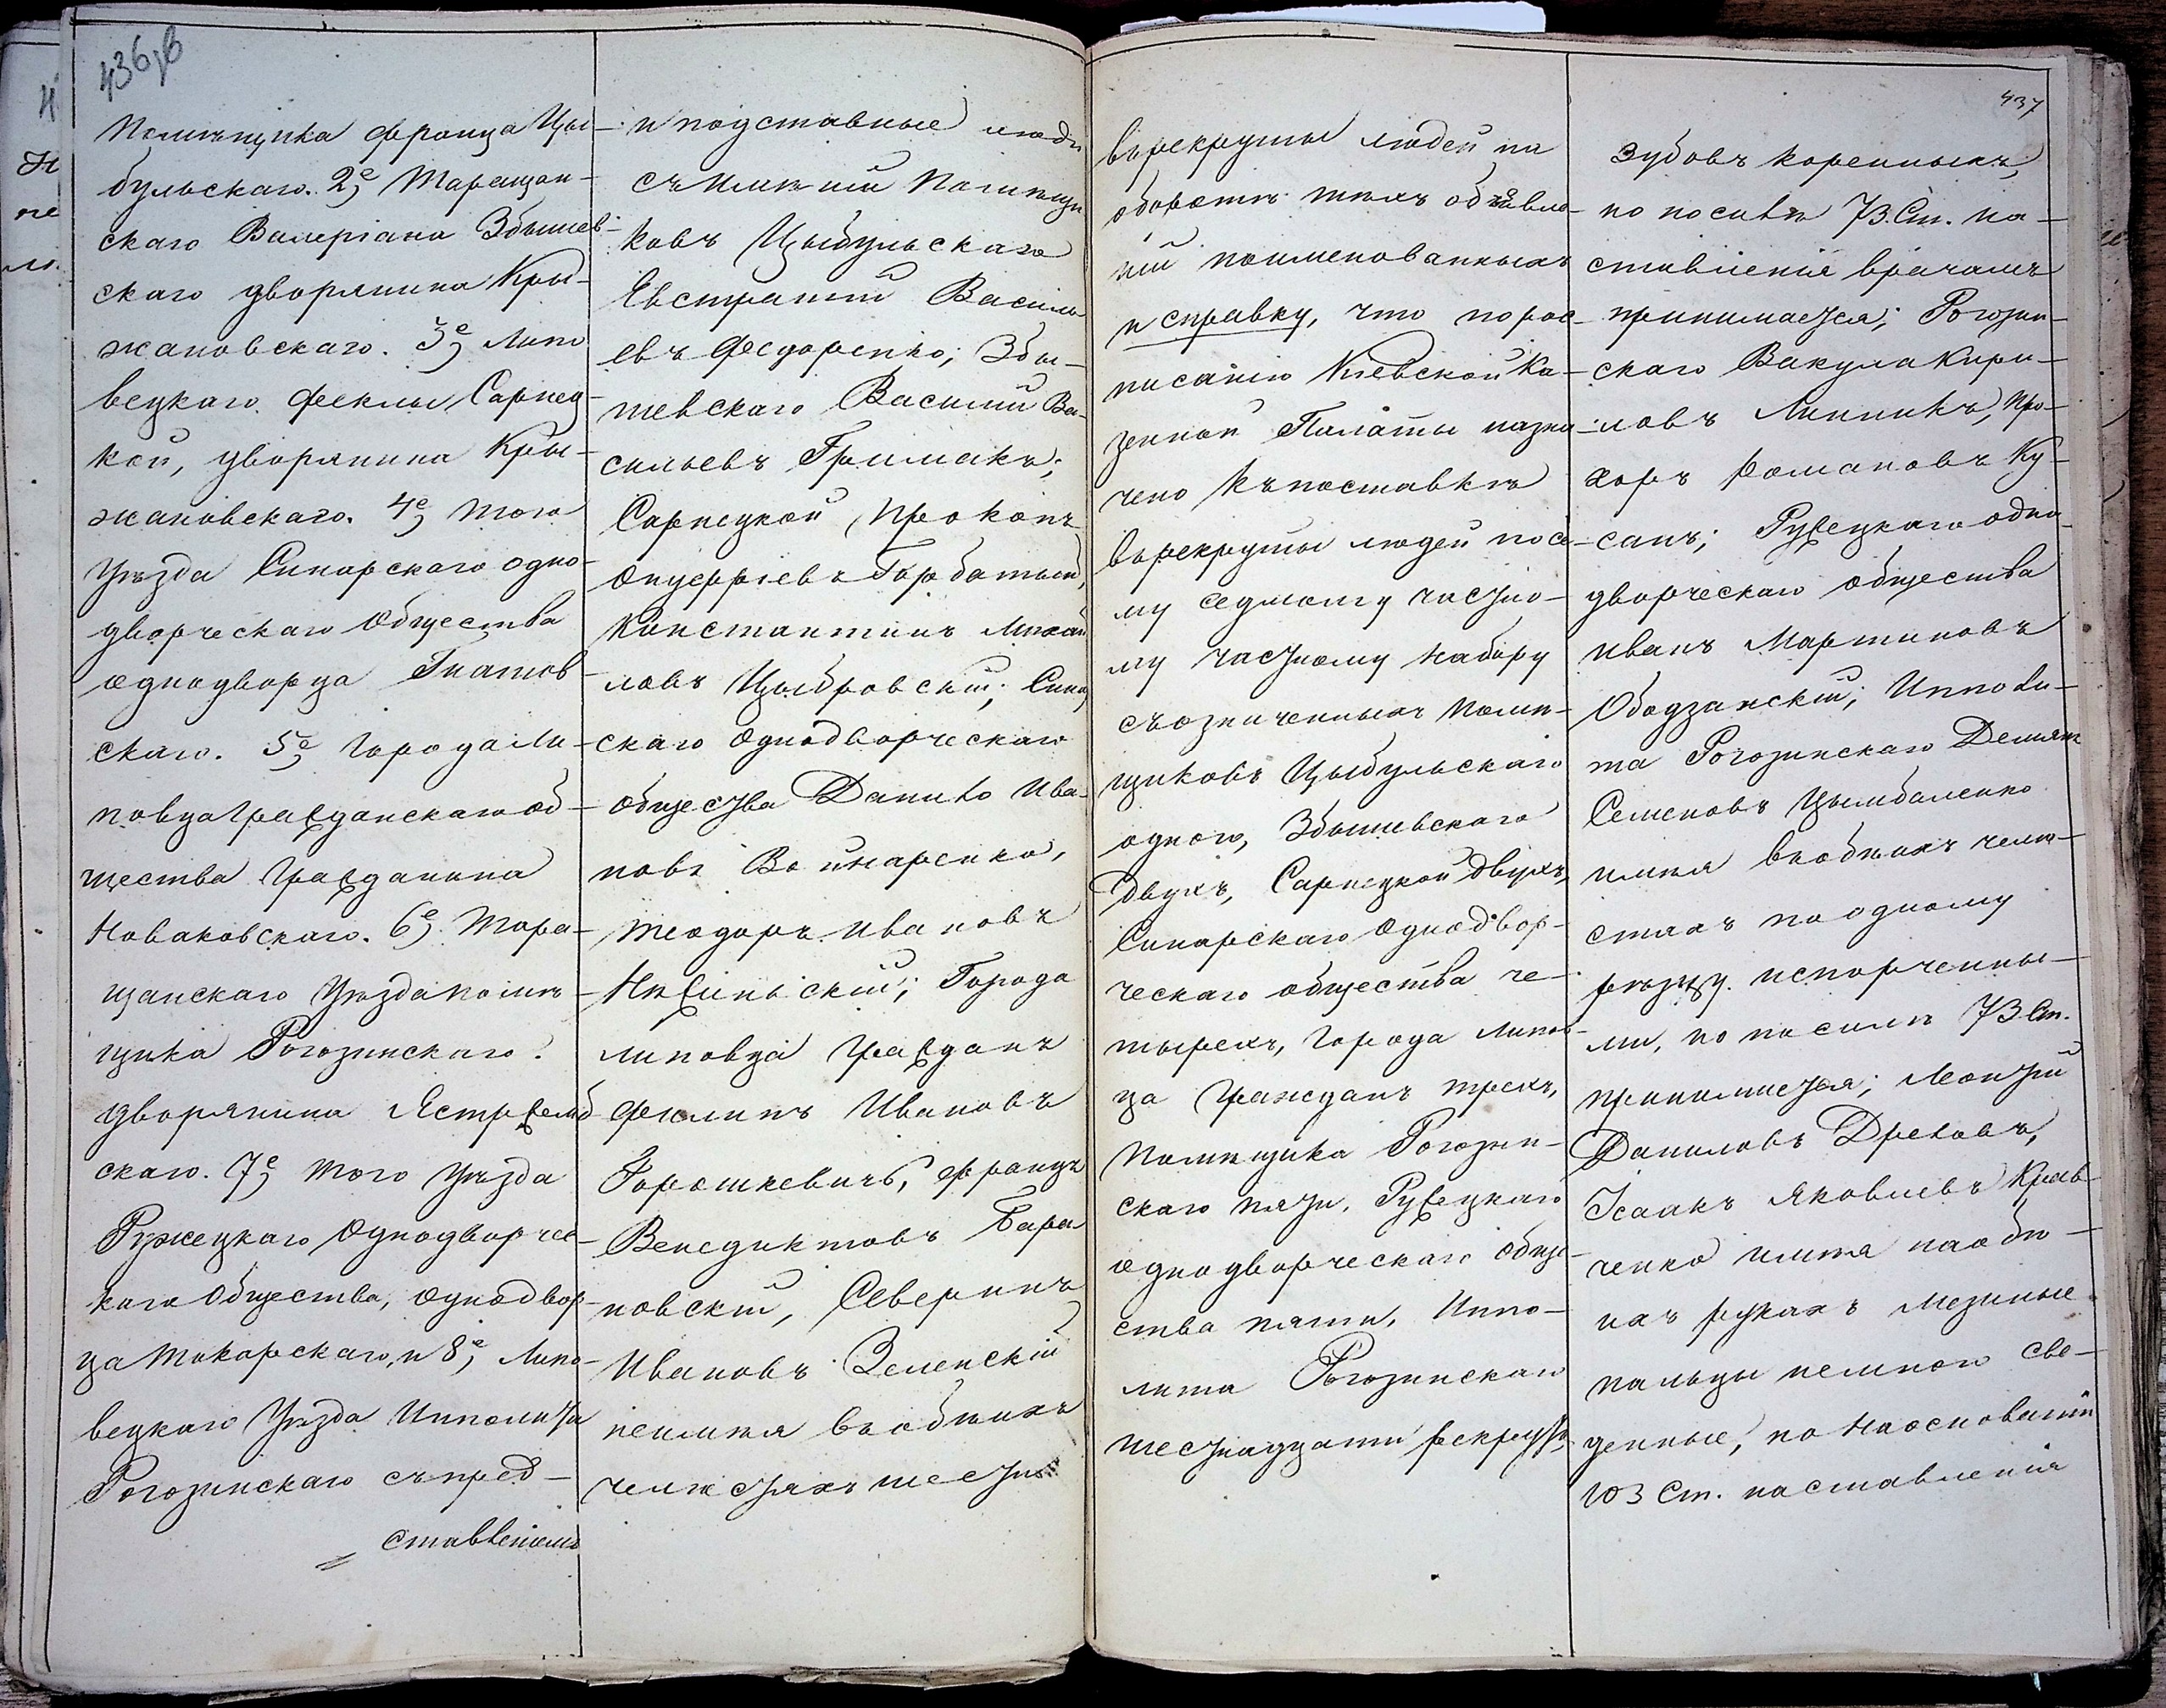 436 зв
Помѣщика Франца Цы-
бульскаго. 2е, Таращан-
скаго Валеріана Збышев-
скаго дворянина Кры-
жановскаго. 3е, Липо
вецкаго Феклы Сарнец-
кой, дворянина Кры-
жановскаго. 4е, того
Уѣзда Синарскаго одно-
дворческаго Общества
однодворца Гнатов-
скаго. 5е, Города Ли-
повца Гражданскаго об-
щества Гражданина
Новаковскаго. 6е, Тара-
щанскаго Уѣзда помѣ-
щика Рогозинскаго
дворянина Ястржемб
скаго. 7е, того Уѣзда
Ружецкаго Однодворчес-
каго Общества, Однодвор-
ца Токарскаго, и 8е, Липо-
вецкаго Уѣзда Ипполита
Рогозинскаго съ пред-
ставленіемъ
и подставные люди
съ имѣній Помѣщи
ковъ Цыбульскаго
Евстратій Василь
евъ Федоренко; Збы-
шевскаго Василій Ва-
сильевъ Гримакъ;
Сарнецкой Прокопъ
Онуфріевъ Горбатый,
Константинъ Михай
ловъ Цыбровскій; Синар
скаго Однодворческаго
Общества Данило Ива-
новъ Войнаренко,
Теодоръ Ивановъ
Нѣжинскій; Города
Липовца Гражданъ
Филипъ Ивановъ
Горошкевичъ, Францъ
Венедиктовъ Бара
новскій, Северинъ
Ивановъ Зеленскій
неимѣя въ обѣихъ
челюстяхъ шести
437
въ рекруты людей на
оборотѣ тѣхъ объявле-
ній поименованныхъ
и справку, что по рос-
писанію Кіевской Ка-
зенной Палаты назна-
чено къ поставкѣ
въ рекруты людей по се-
му седмому частно-
му частному набору
съ означенныхъ помѣ-
щиковъ Цыбульскаго
одного, Збышевскаго
двухъ, Сарнецкой двухъ,
Синарскаго Однодвор-
ческаго общества че-
тырехъ, Города Липов-
ца Гражданъ трехъ,
Помѣщика Рогозин-
скаго пяти, Ружецкаго
однодворческаго обще-
ства пяти, Иппо-
лита Рогозинскаго
шестнадцати рекрутъ,
зубовъ коренныхъ,
но по силѣ 73. Ст. на-
ставленія врачамъ
принимается; Рогозин-
скаго Вакула Кири-
ловъ Линникъ, Про-
хоръ Романовъ Ку-
санъ; Ружецкаго одно-
дворческаго общества
Иванъ Мартиновъ
Ободзинскій; Ипполи-
та Рогозинскаго Демьян
Семеновъ Цымбаленко
имѣя въ обѣихъ челю-
стяхъ по одному
рѣзцу испорченны-
ми, но по силѣ 73 Ст.
принимается;
Даниловъ
Исаакъ Яковлевъ Крав-
ченко имѣя на обѣ-
ихъ рукахъ мезиные
пальцы немного све-
денные, но на основаніи
103 Ст. наставленія